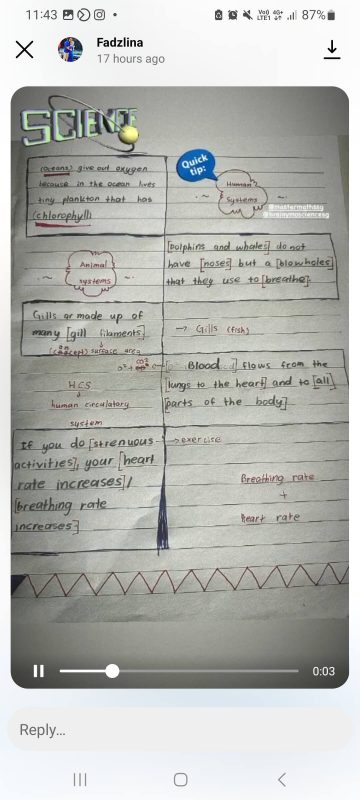 11:43
Vo)) 4G+
LTE1
87%
Fadzlina
17 hours ago
SCIENCE
(oceans) give out oxygen
because in the ocean lives
tiny plankton that has
(chlorophyll)
Quick
tip:
Human
Systems
@mastermathssg
@brainymosciencesg
Animal
systems
[Dolphins and whales] do not
have [noses] but a [blowholes]
that they use to [breathe].
Gills ar made up of
many [gill filaments].
surface area
→ Gills (fish)
Blood flows from the
[lungs to the heart] and to [all
parts of the body].
HCS
↓
human circulatory
system
If you do [strenuous
activities], your [heart
rate increases]/
[breathing rate
increases]
→ exercise
Breathing rate
+
Heart rate
0:03
Reply...